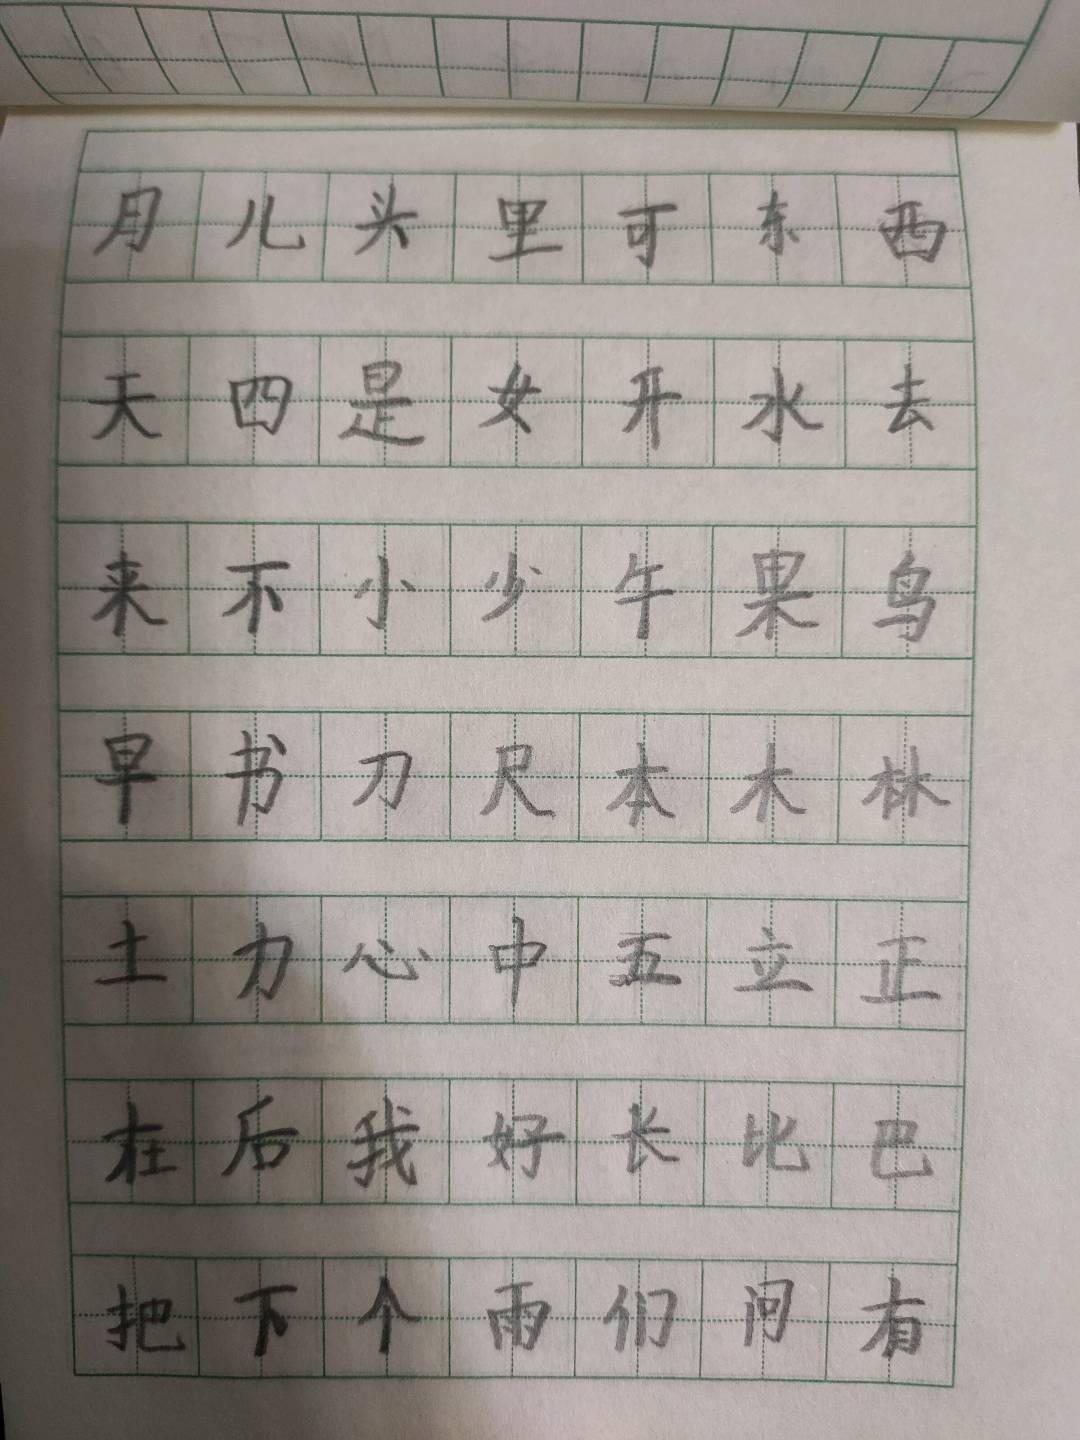 月儿头里可东西
天四是女开水去
来不小少午果鸟
早书刀尺本木林
土力心中五立正
在后我好长比巴
把下个雨们问有